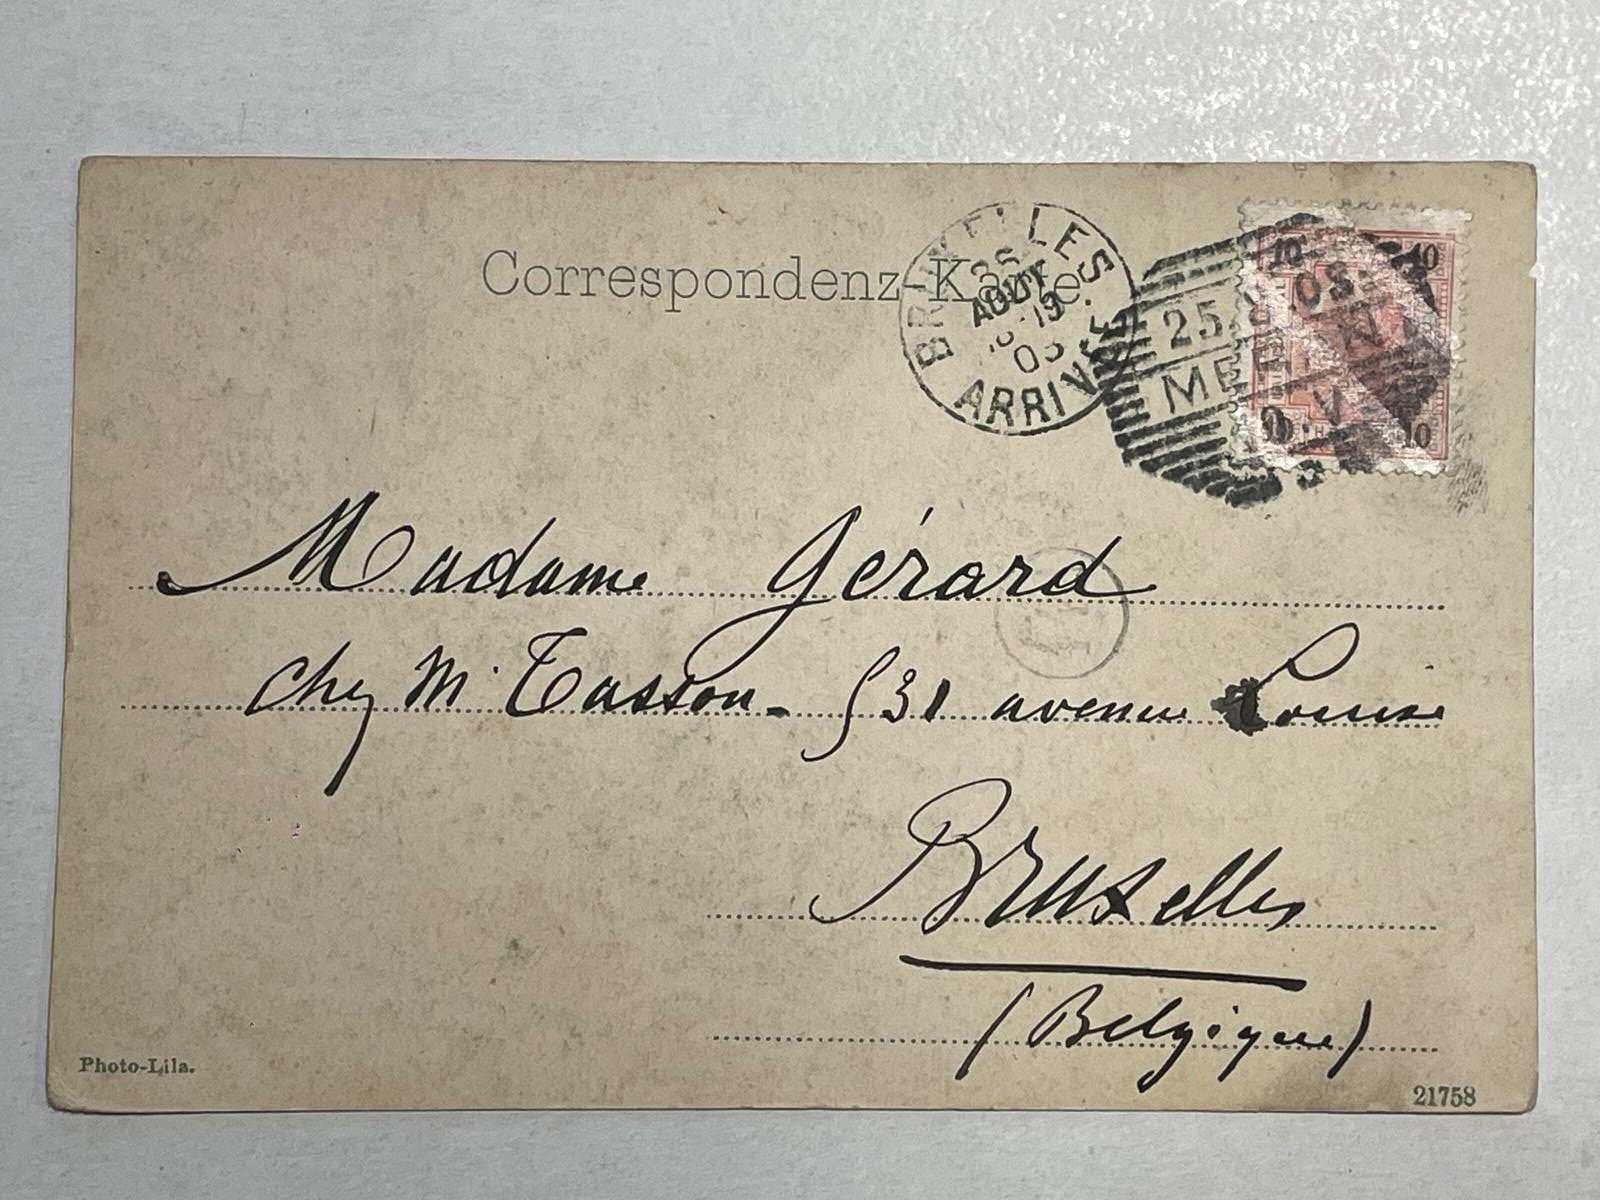 Correspondenz-Karte.
BRUXELLES
AOUT
ARRIVÉE
25.8.03.
10 10
10 10
Madame Gérard
chez Mr Tasson - 531 avenue Louise
Bruxelles
(Belgique)
Photo-Lila.
21758